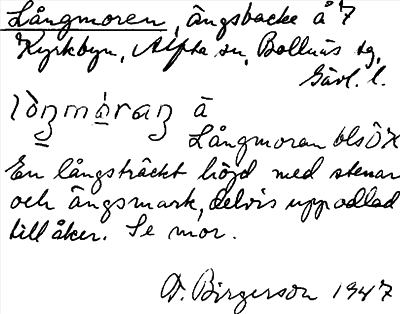 Långmoren, ängsbacke å 7
Kyrkbyn, Alfta sn, Bollnäs tg,
Gävl. l.
lòŋmɷ́raŋ ä
Långmoran bls ÖK
En långsträckt höjd med stenar
och ängsmark, delvis uppodlad
till åker. Se mor.
D. Birgerson 1947